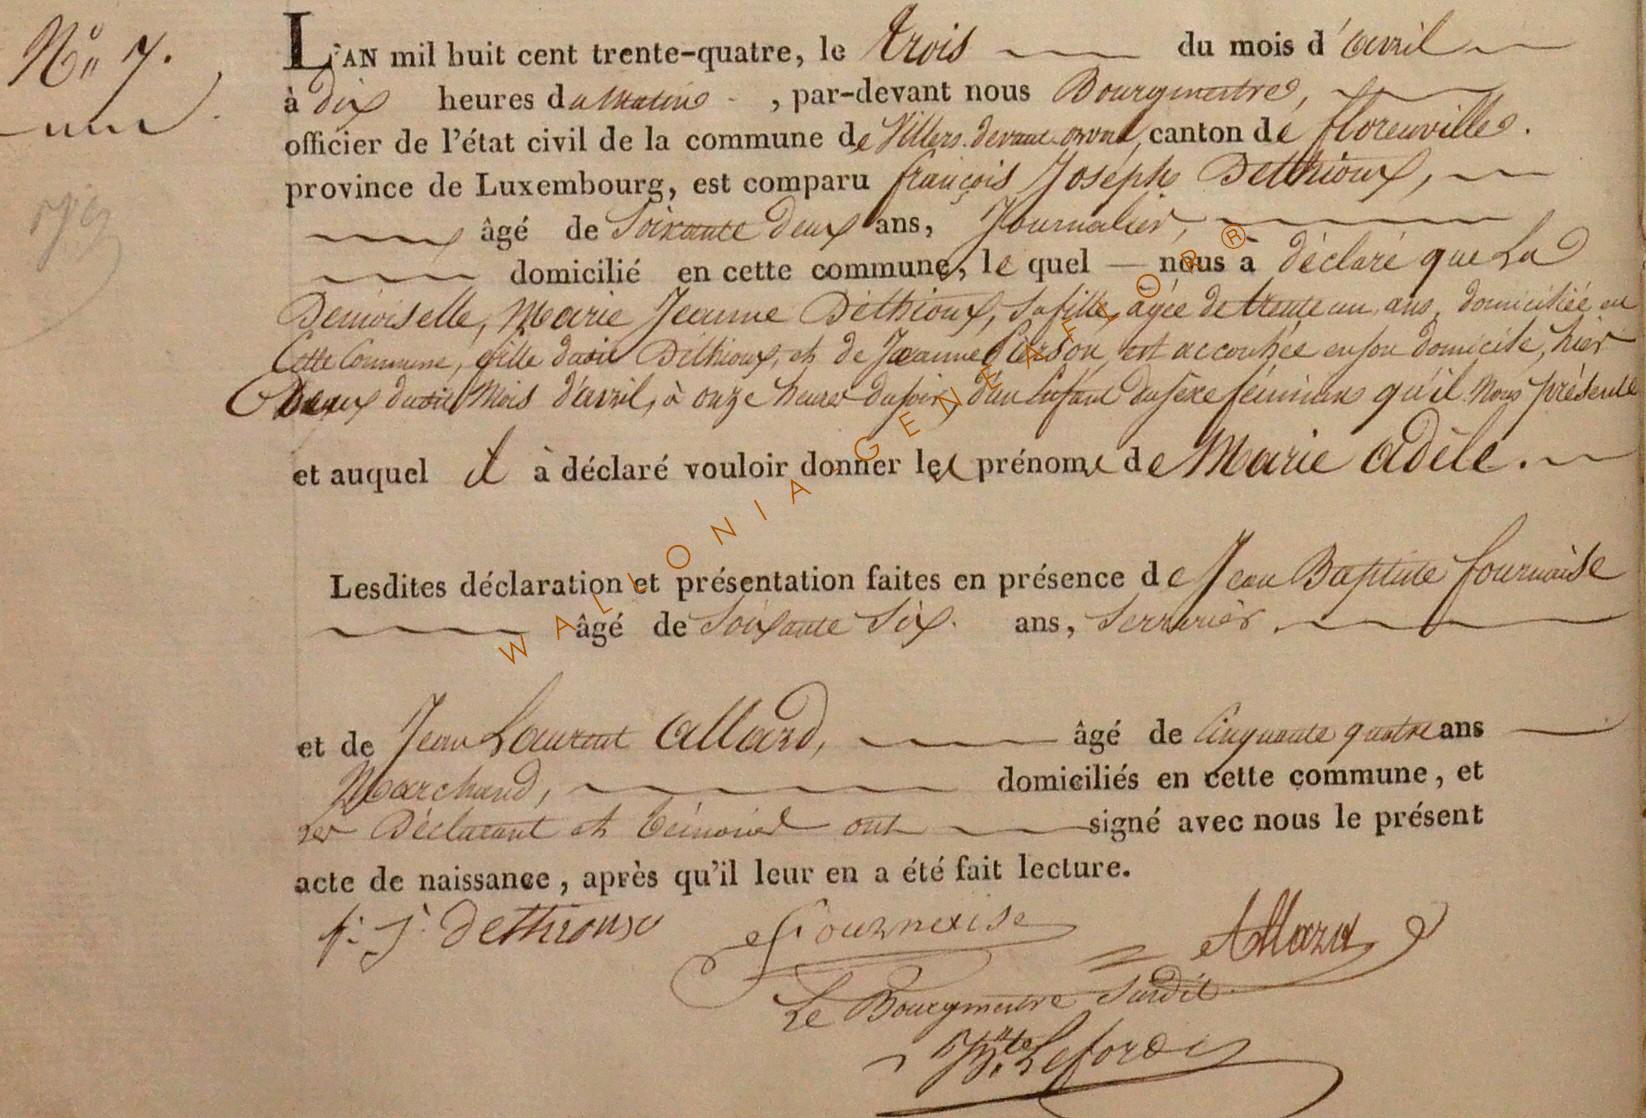 N° 7.
L'AN mil huit cent trente-quatre, le trois du mois d'avril
à dix heures du matin, par-devant nous Bourgmestre,
officier de l'état civil de la commune de Villers devant orval, canton de florenville.
province de Luxembourg, est comparu françois Joseph Dethioux,
âgé de Soixante deux ans, Journalier,
domicilié en cette commune, le quel nous à déclaré que La
Demoiselle, Marie Jeanne Dethioux, sa fille, agée de trente un ans, domiciliée en
Cette Commune, fille dudit Dethioux, et de Jeanne Pierson, est accouchée en son domicile, hier
Deux dudit Mois d'avril, à onze heures du soir, d'un Enfant du sexe féminin qu'il nous présente
et auquel il à déclaré vouloir donner les prénoms de Marie Adèle.
Lesdites déclaration et présentation faites en présence de Jean Baptiste fournaise
âgé de Soixante Six ans, Serrurier.
et de Jean Laurent Allard, âgé de Cinquante quatre ans
Marchand, domiciliés en cette commune, et
les Déclarant et témoins ont signé avec nous le présent
acte de naissance, après qu'il leur en a été fait lecture.
f: J: dethioux
Fournaise
Allard
Le Bourgmestre Susdit
Leford
WALLONIA GENEAFLOR ®